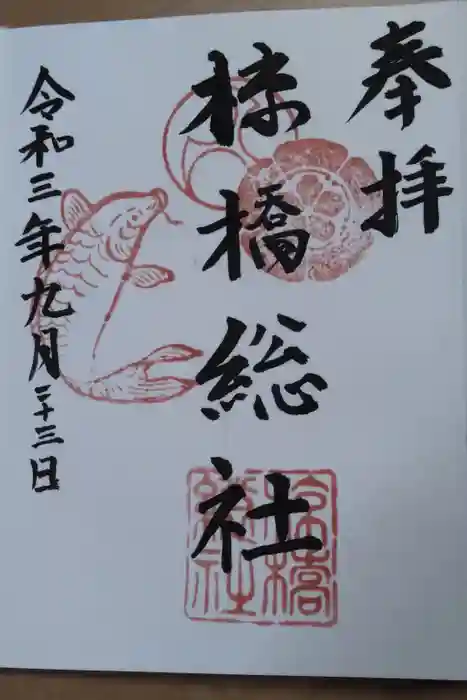 奉拝
椋橋総社
令和三年九月二十三日
椋橋総社